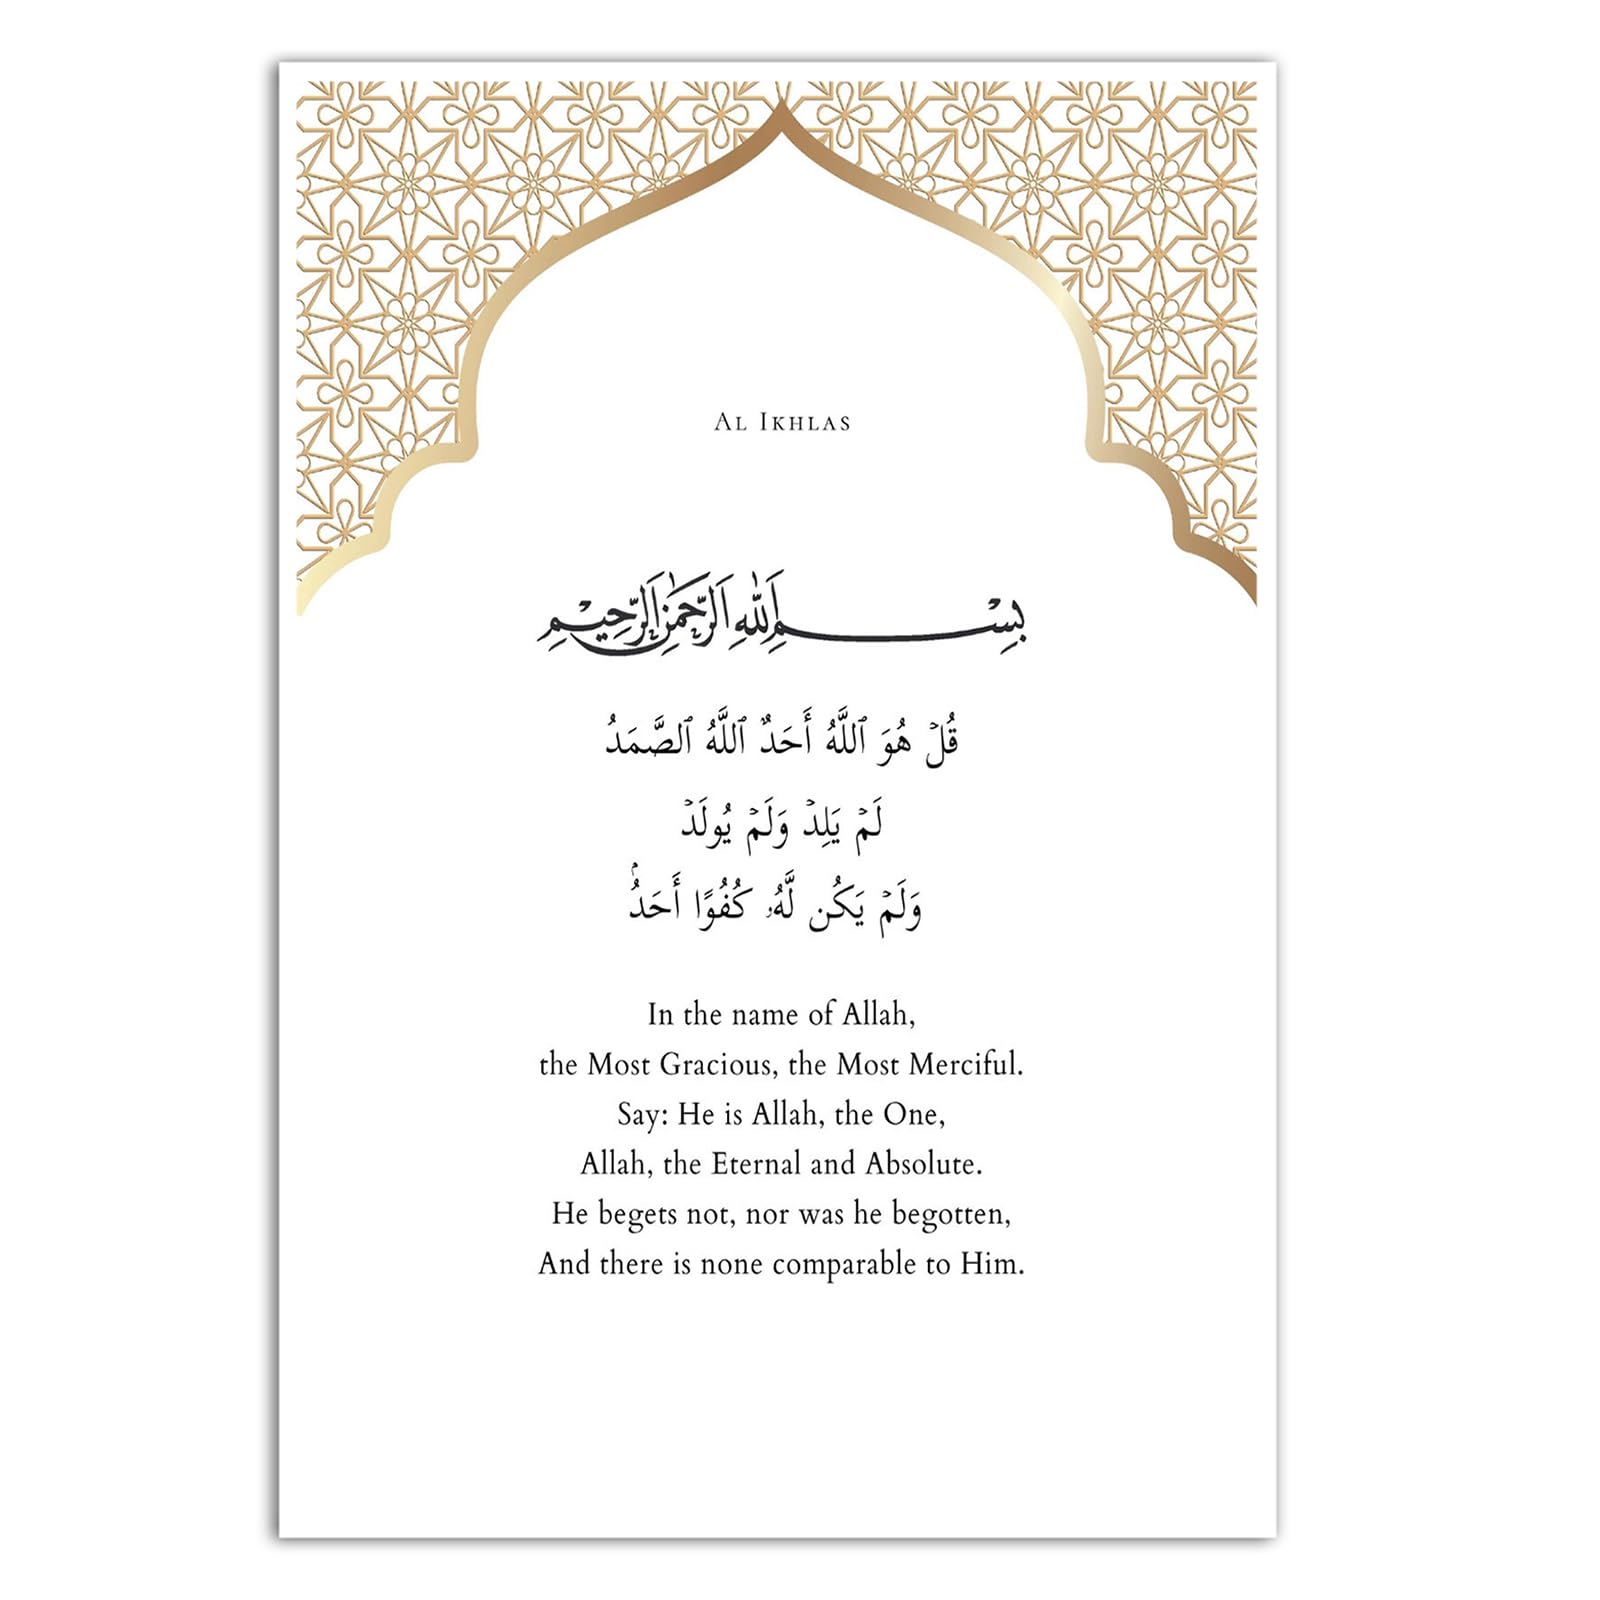 AL IKHLAS
بِسْمِ اللَّهِ الرَّحْمَٰنِ الرَّحِيمِ
قُلۡ هُوَ ٱللَّهُ أَحَدٌ ٱللَّهُ ٱلصَّمَدُ
لَمۡ يَلِدۡ وَلَمۡ يُولَدۡ
وَلَمۡ يَكُن لَّهُۥ كُفُوًا أَحَدُۢ
In the name of Allah,
the Most Gracious, the Most Merciful.
Say: He is Allah, the One,
Allah, the Eternal and Absolute.
He begets not, nor was he begotten,
And there is none comparable to Him.